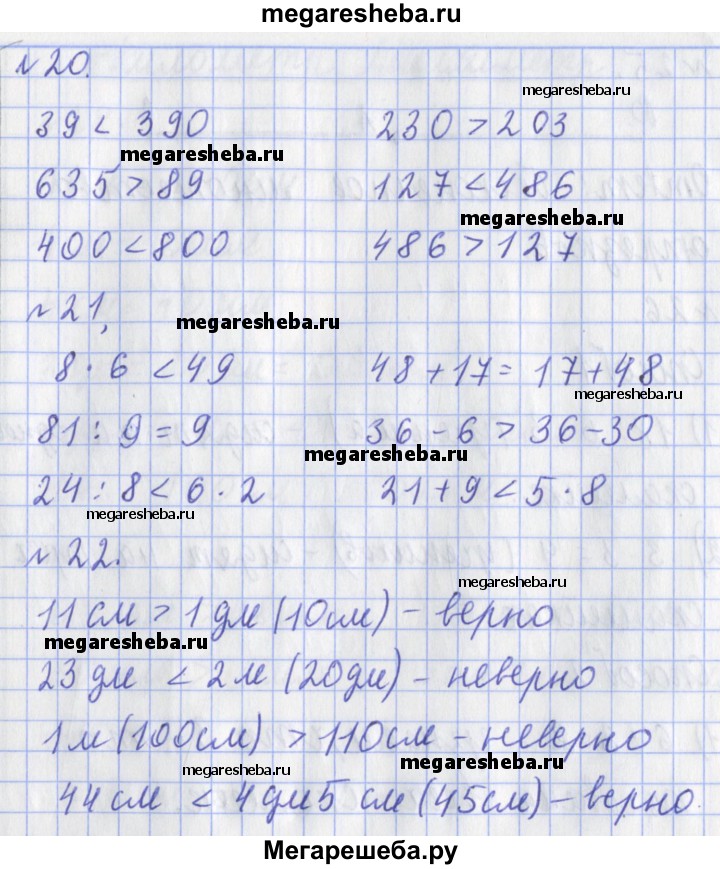 megaresheba.ru
№20.
39 < 390 230 > 203
megaresheba.ru
megaresheba.ru
635 > 89 127 < 486
megaresheba.ru
400 < 800 486 > 127
№21,
megaresheba.ru
8 · 6 < 49 48 + 17 = 17 + 48
megaresheba.ru
81 : 9 = 9 36 - 6 > 36 - 30
megaresheba.ru
24 : 8 < 6 · 2 21 + 9 < 5 · 8
megaresheba.ru
№22.
megaresheba.ru
11 см > 1 дм (10 см) - верно
megaresheba.ru
23 дм < 2 м (20 дм) - неверно
1 м (100 см) > 110 см - неверно
megaresheba.ru
megaresheba.ru
44 см < 4 дм 5 см (45 см) - верно.
megaresheba.ru
Мегарешеба.ру